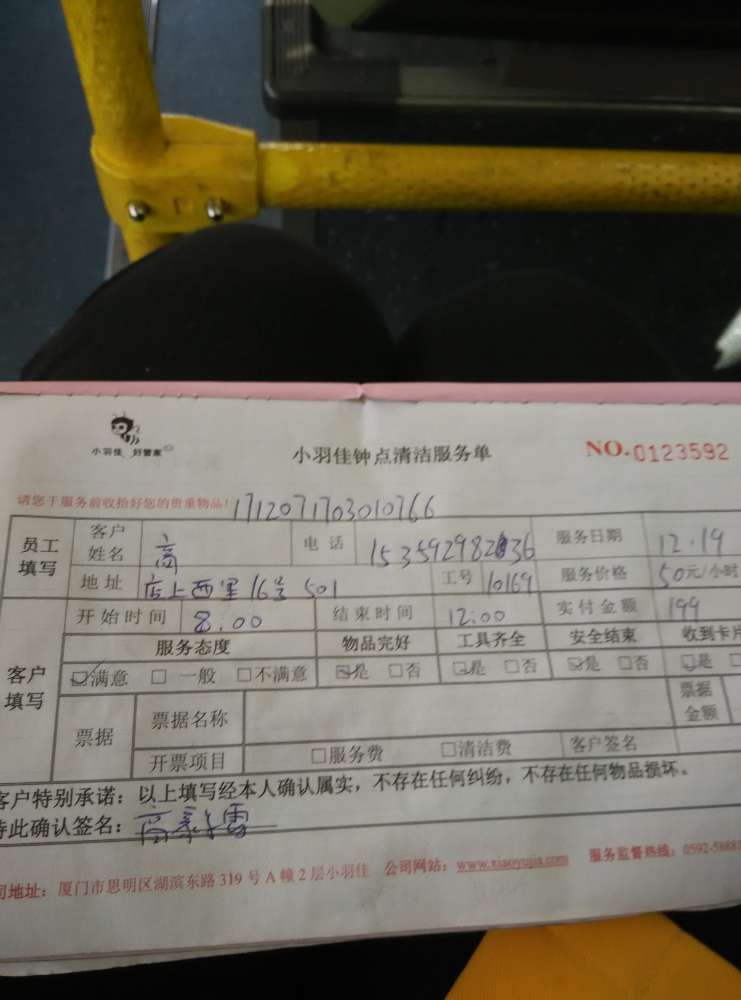 小羽佳 好管家
小羽佳钟点清洁服务单
NO.0123592
请您于服务前收拾好您的贵重物品! 1712071703010766
员工填写 客户姓名 高 电话 服务日期 12.19
地址 店上西里16号501 工号 10169 服务价格 50元/小时
客户填写 开始时间 8:00 结束时间 12:00 实付金额 199
服务态度 物品完好 工具齐全 安全结束 收到卡片
☑满意 □一般 □不满意 ☑是 □否 ☑是 □否 ☑是 □否 ☑是 □
票据 票据名称 票据金额
开票项目 □服务费 □清洁费 客户签名
客户特别承诺：以上填写经本人确认属实，不存在任何纠纷，不存在任何物品损坏。
特此确认签名：高
司地址：厦门市思明区湖滨东路319号A幢2层小羽佳 公司网站：www.xiaoyujia.com 服务监督热线：0592-5888